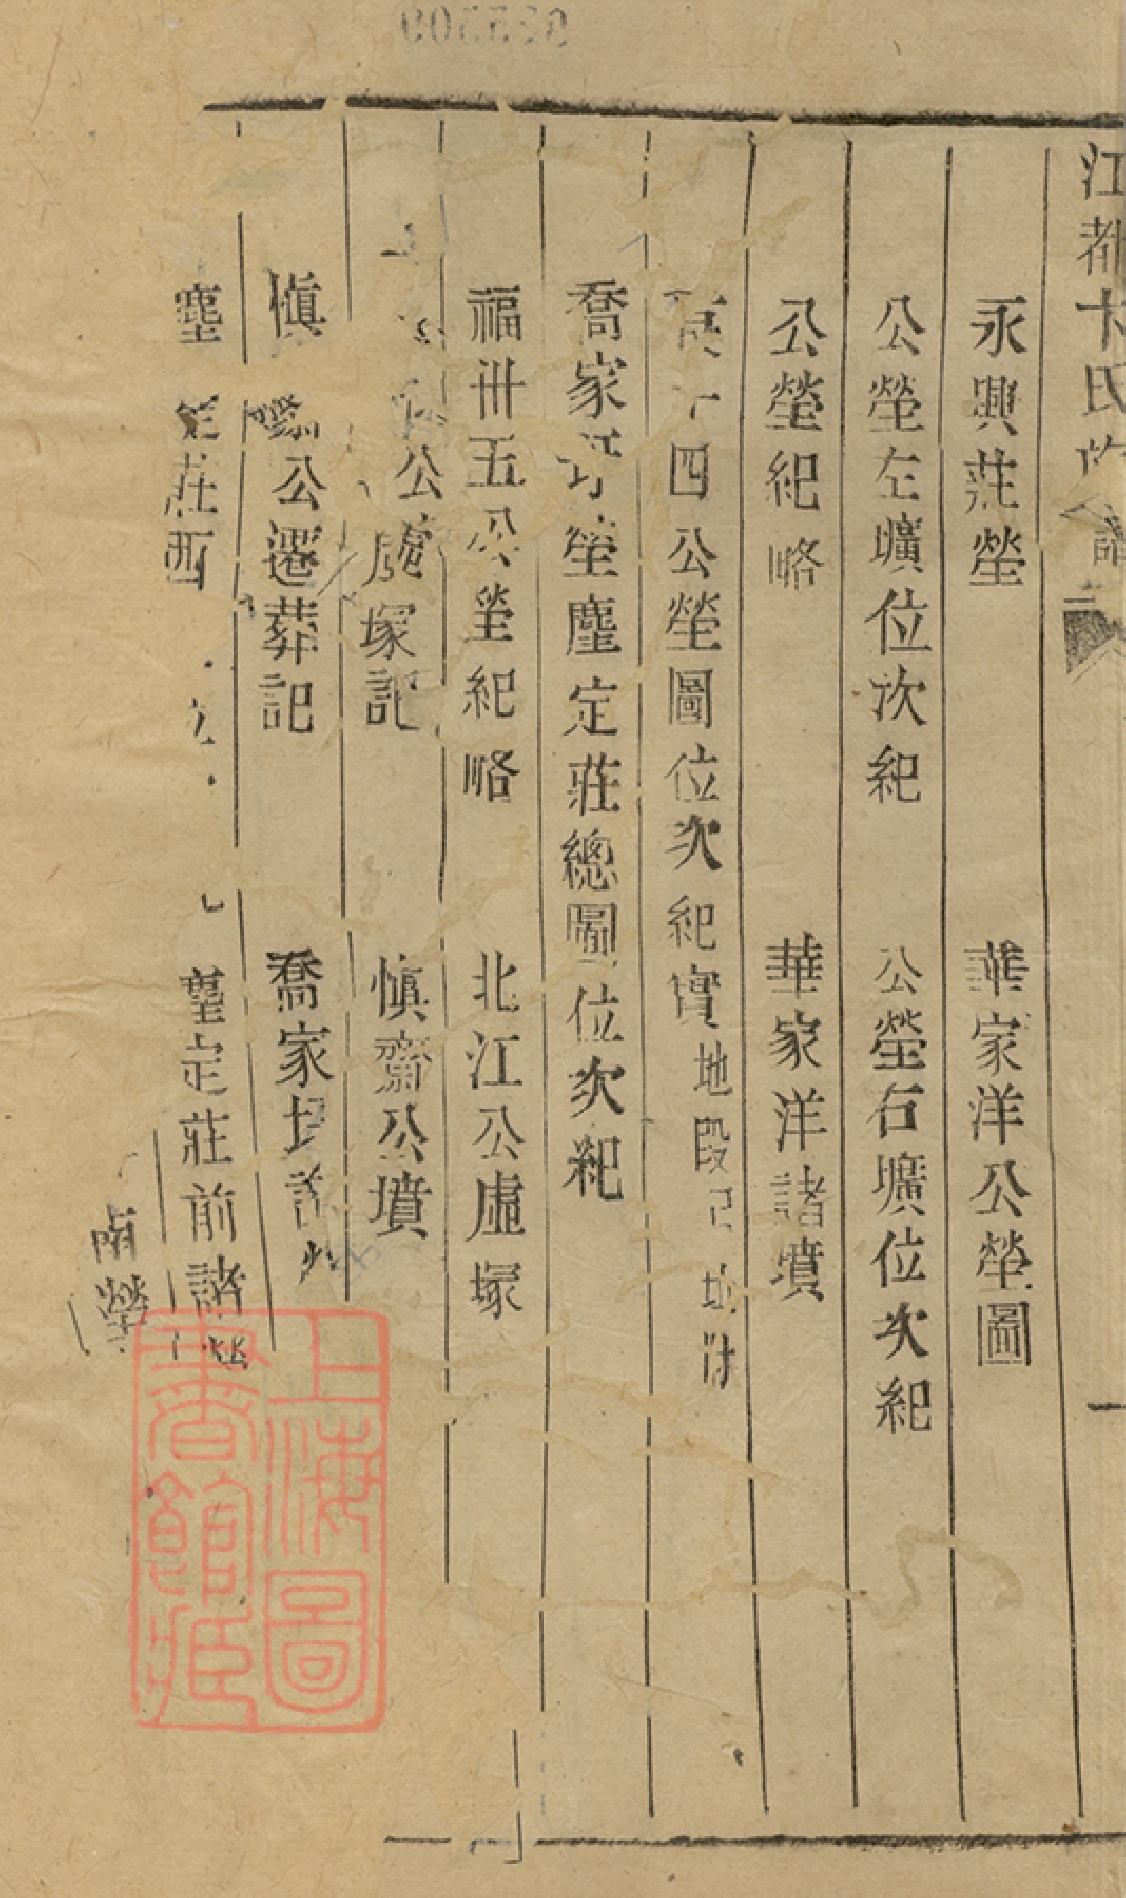 江都卞氏族譜
永興莊塋　華家洋公塋圖
公塋左壙位次紀　公塋右壙位次紀
公塋紀略　華家洋諸墳
四公塋圖位次紀實地段
喬家塋塵定莊總圖位次紀
福卅五公塋紀略　北江公虛塚
公虛塚記　慎齋公墳
慎公遷葬記　喬家
塵定莊西　塵定莊前諸塋
南塋
上海圖書館藏